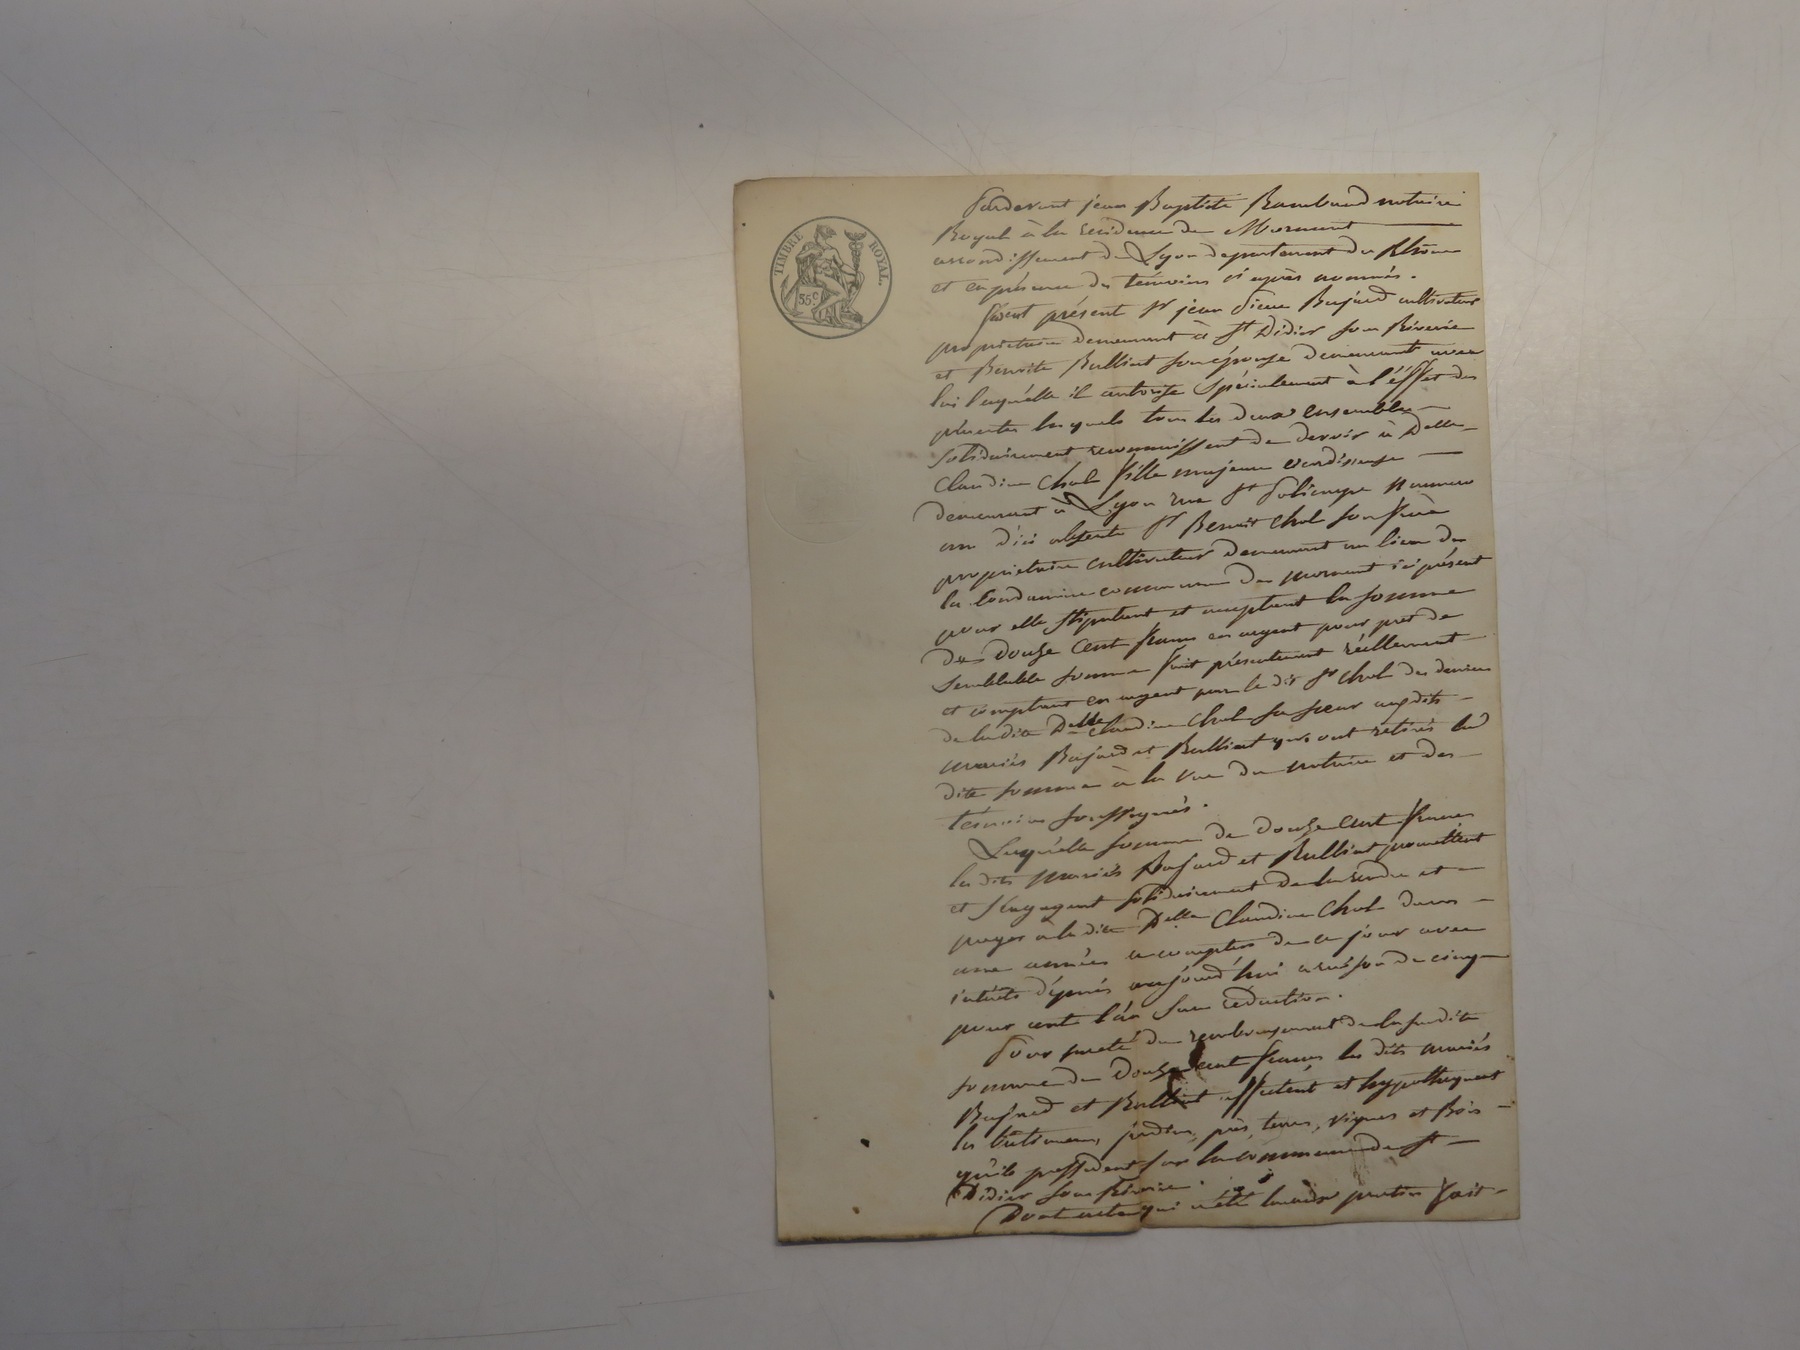 TIMBRE ROYAL.
35c
Pardevant jean Baptiste Rambaud notaire
Royal à la residence de Mornant
arrondissement de Lyon departement du Rhône
et en présence des témoins ci après nommés.
furent présent Sr jean Bajard cultivateur
propriétaire demeurant à St Didier sous Riverie
et Benoite Bulliat son épouse demeurant avec
lui laquelle il autorise spécialement à l'éffet des
présentes lesquels tous les deux ensemble
solidairement reconnaissent de devoir à Delle
Claudine Chol fille majeure
demeurant à Lyon rue St Policarpe Numero
un d'ici absente Sr Benoit Chol son frère
propriétaire cultivateur demeurant au lieu de
la Condamine commune de Mornant ici présent
pour elle stipulant et acceptant la somme
de douze cent francs en argent pour pret de
semblable somme fait présentement réellement
et comptant en argent par le dit Sr Chol des deniers
de la dite Delle Claudine Chol sa sœur aux dits
mariés Bajard et Bulliat qui ont retirés la
dite somme à la vue du notaire et des
témoins soussignés.
Laquelle somme de douze cent francs
les dits mariés Bajard et Bulliat promettent
et s'engagent solidairement de la rendre et
payer à la dite Delle Claudine Chol dans
une année a compter de ce jour avec
intérêts d'çpuis aujourd'hui a raison de cinq
pour cent l'an sans réduction.
Pour sureté du remboursement de la susdite
somme de douze cent francs les dits mariés
Bajard et Bulliat affectent et hypothequent
les bâtiments, jardins, près, terres, vignes et Bois
qu'ils possedent sur la commune de St
Didier sous Riverie.
Dont acte qui a été lu aux parties fait